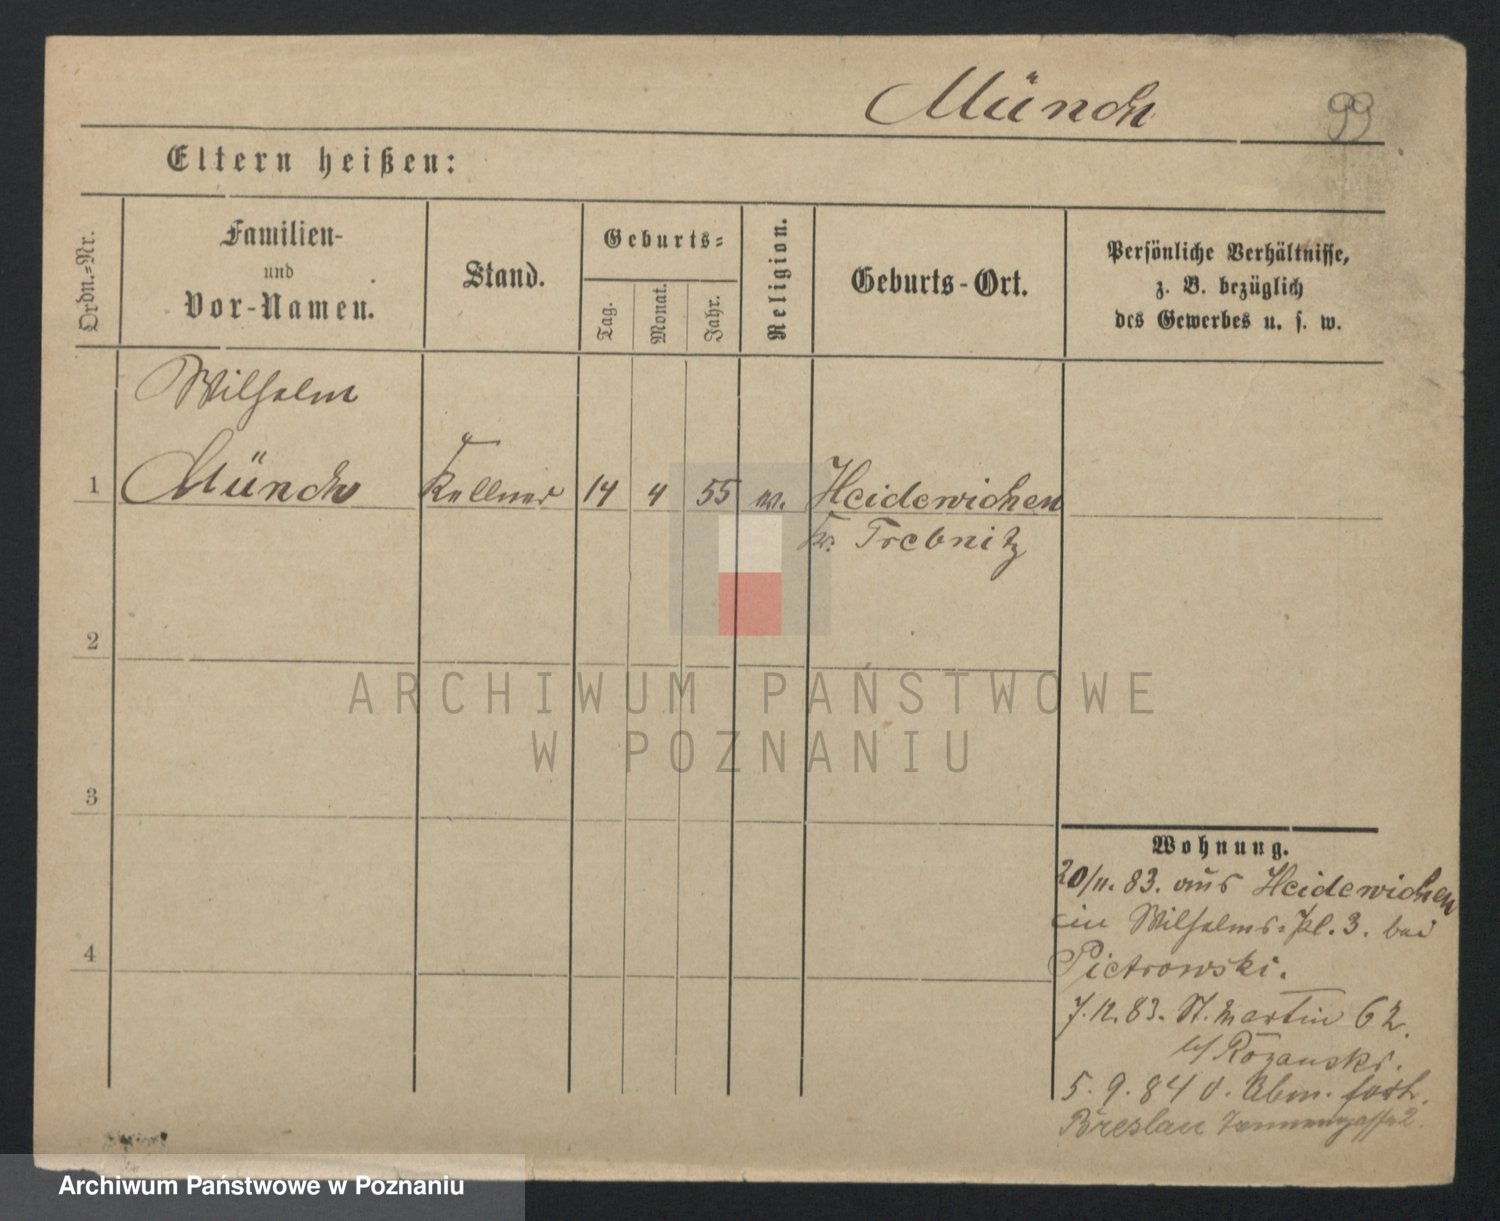 Münch
99
Eltern heißen:
Ordn.=Nr.
Familien-
und
Vor-Namen.
Stand.
Geburts=
Tag.
Monat.
Jahr.
Religion.
Geburts-Ort.
Persönliche Verhältnisse,
z. B. bezüglich
des Gewerbes u. s. w.
Wilhelm
1 Münch Kellner 14 4 55 ev. Heidewichen
Kr. Trebnitz
2
3
4
Wohnung.
20/11. 83. aus Heidewichen
Wilhelms-Pl. 3. bei
Pietrowski.
7.12.83. St. Martin 62.
b/ Rözanski.
5. 9. 84 o. Abm. fort.
Breslau 2.
ARCHIWUM PAŃSTWOWE
W POZNANIU
Archiwum Państwowe w Poznaniu